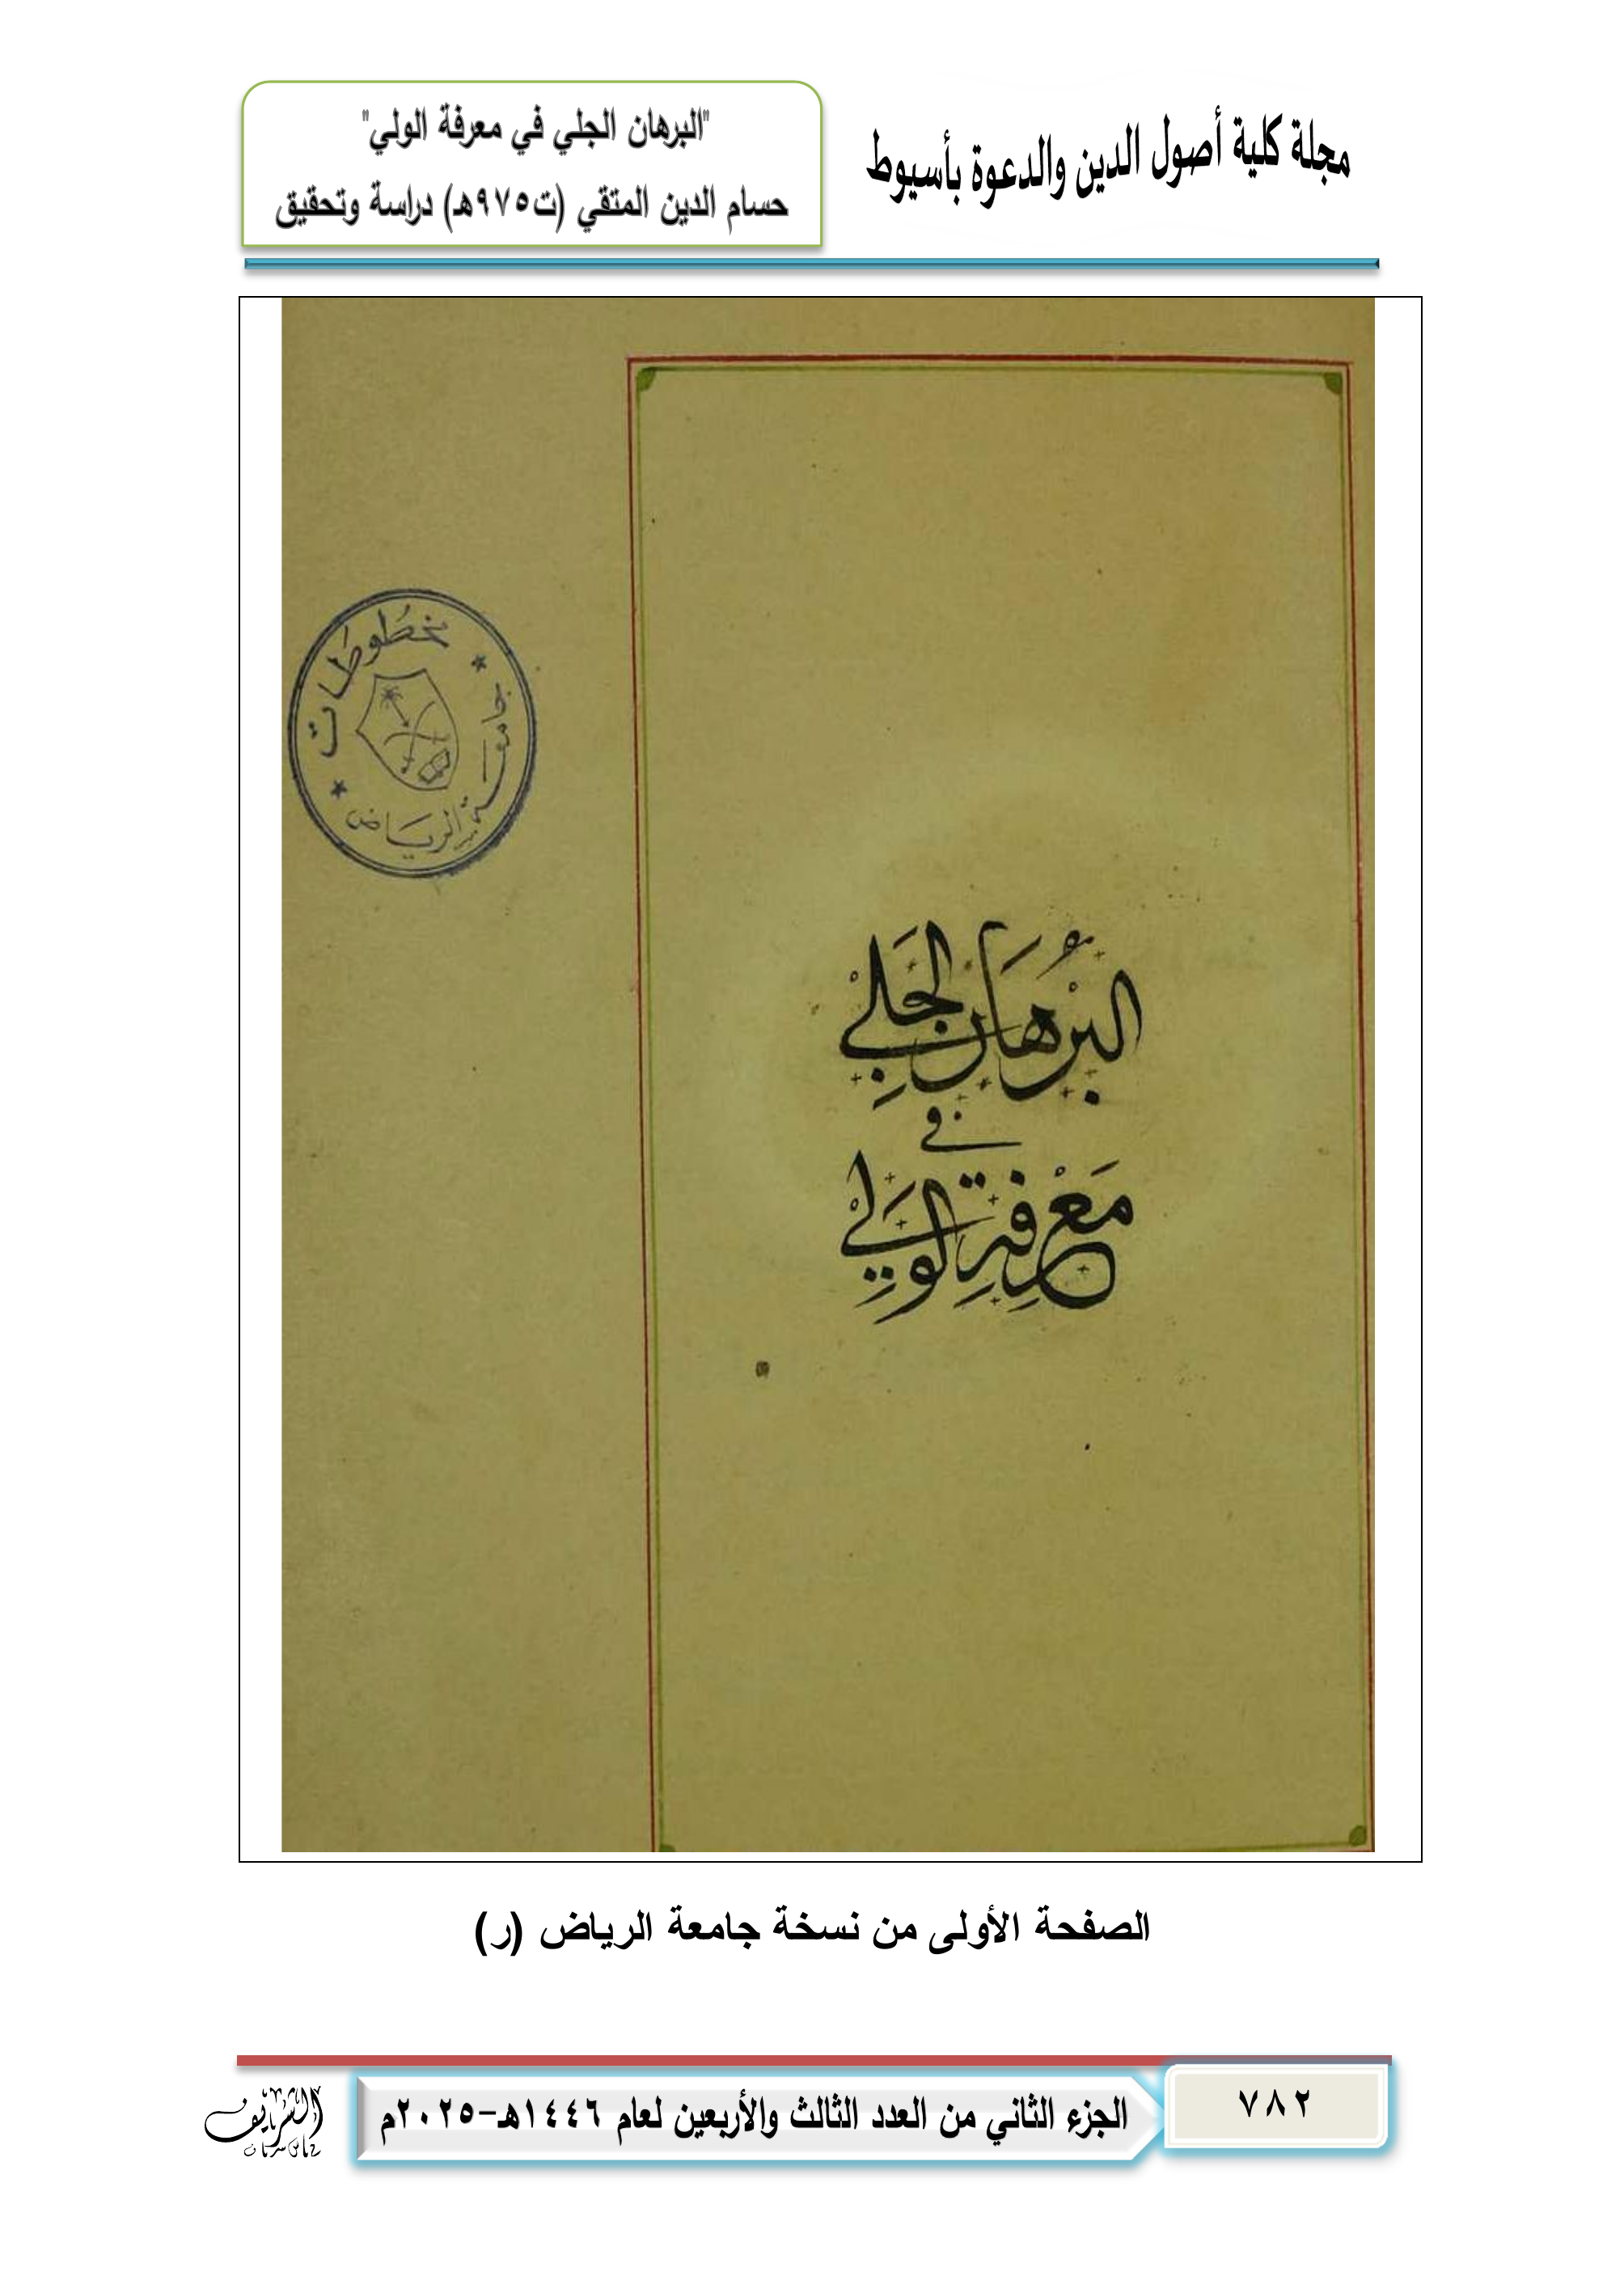 مجلة كلية أصول الدين والدعوة بأسيوط
"البرهان الجلي في معرفة الولي"
حسام الدين المتقي (ت٩٧٥هـ) دراسة وتحقيق
مخطوطات
جامعة الرياض
البُرْهَانُ الجَلِي
في
مَعْرِفَةِ الوَلِي
الصفحة الأولى من نسخة جامعة الرياض (ر)
٧٨٢
الجزء الثاني من العدد الثالث والأربعين لعام ١٤٤٦هـ-٢٠٢٥م
الشريف